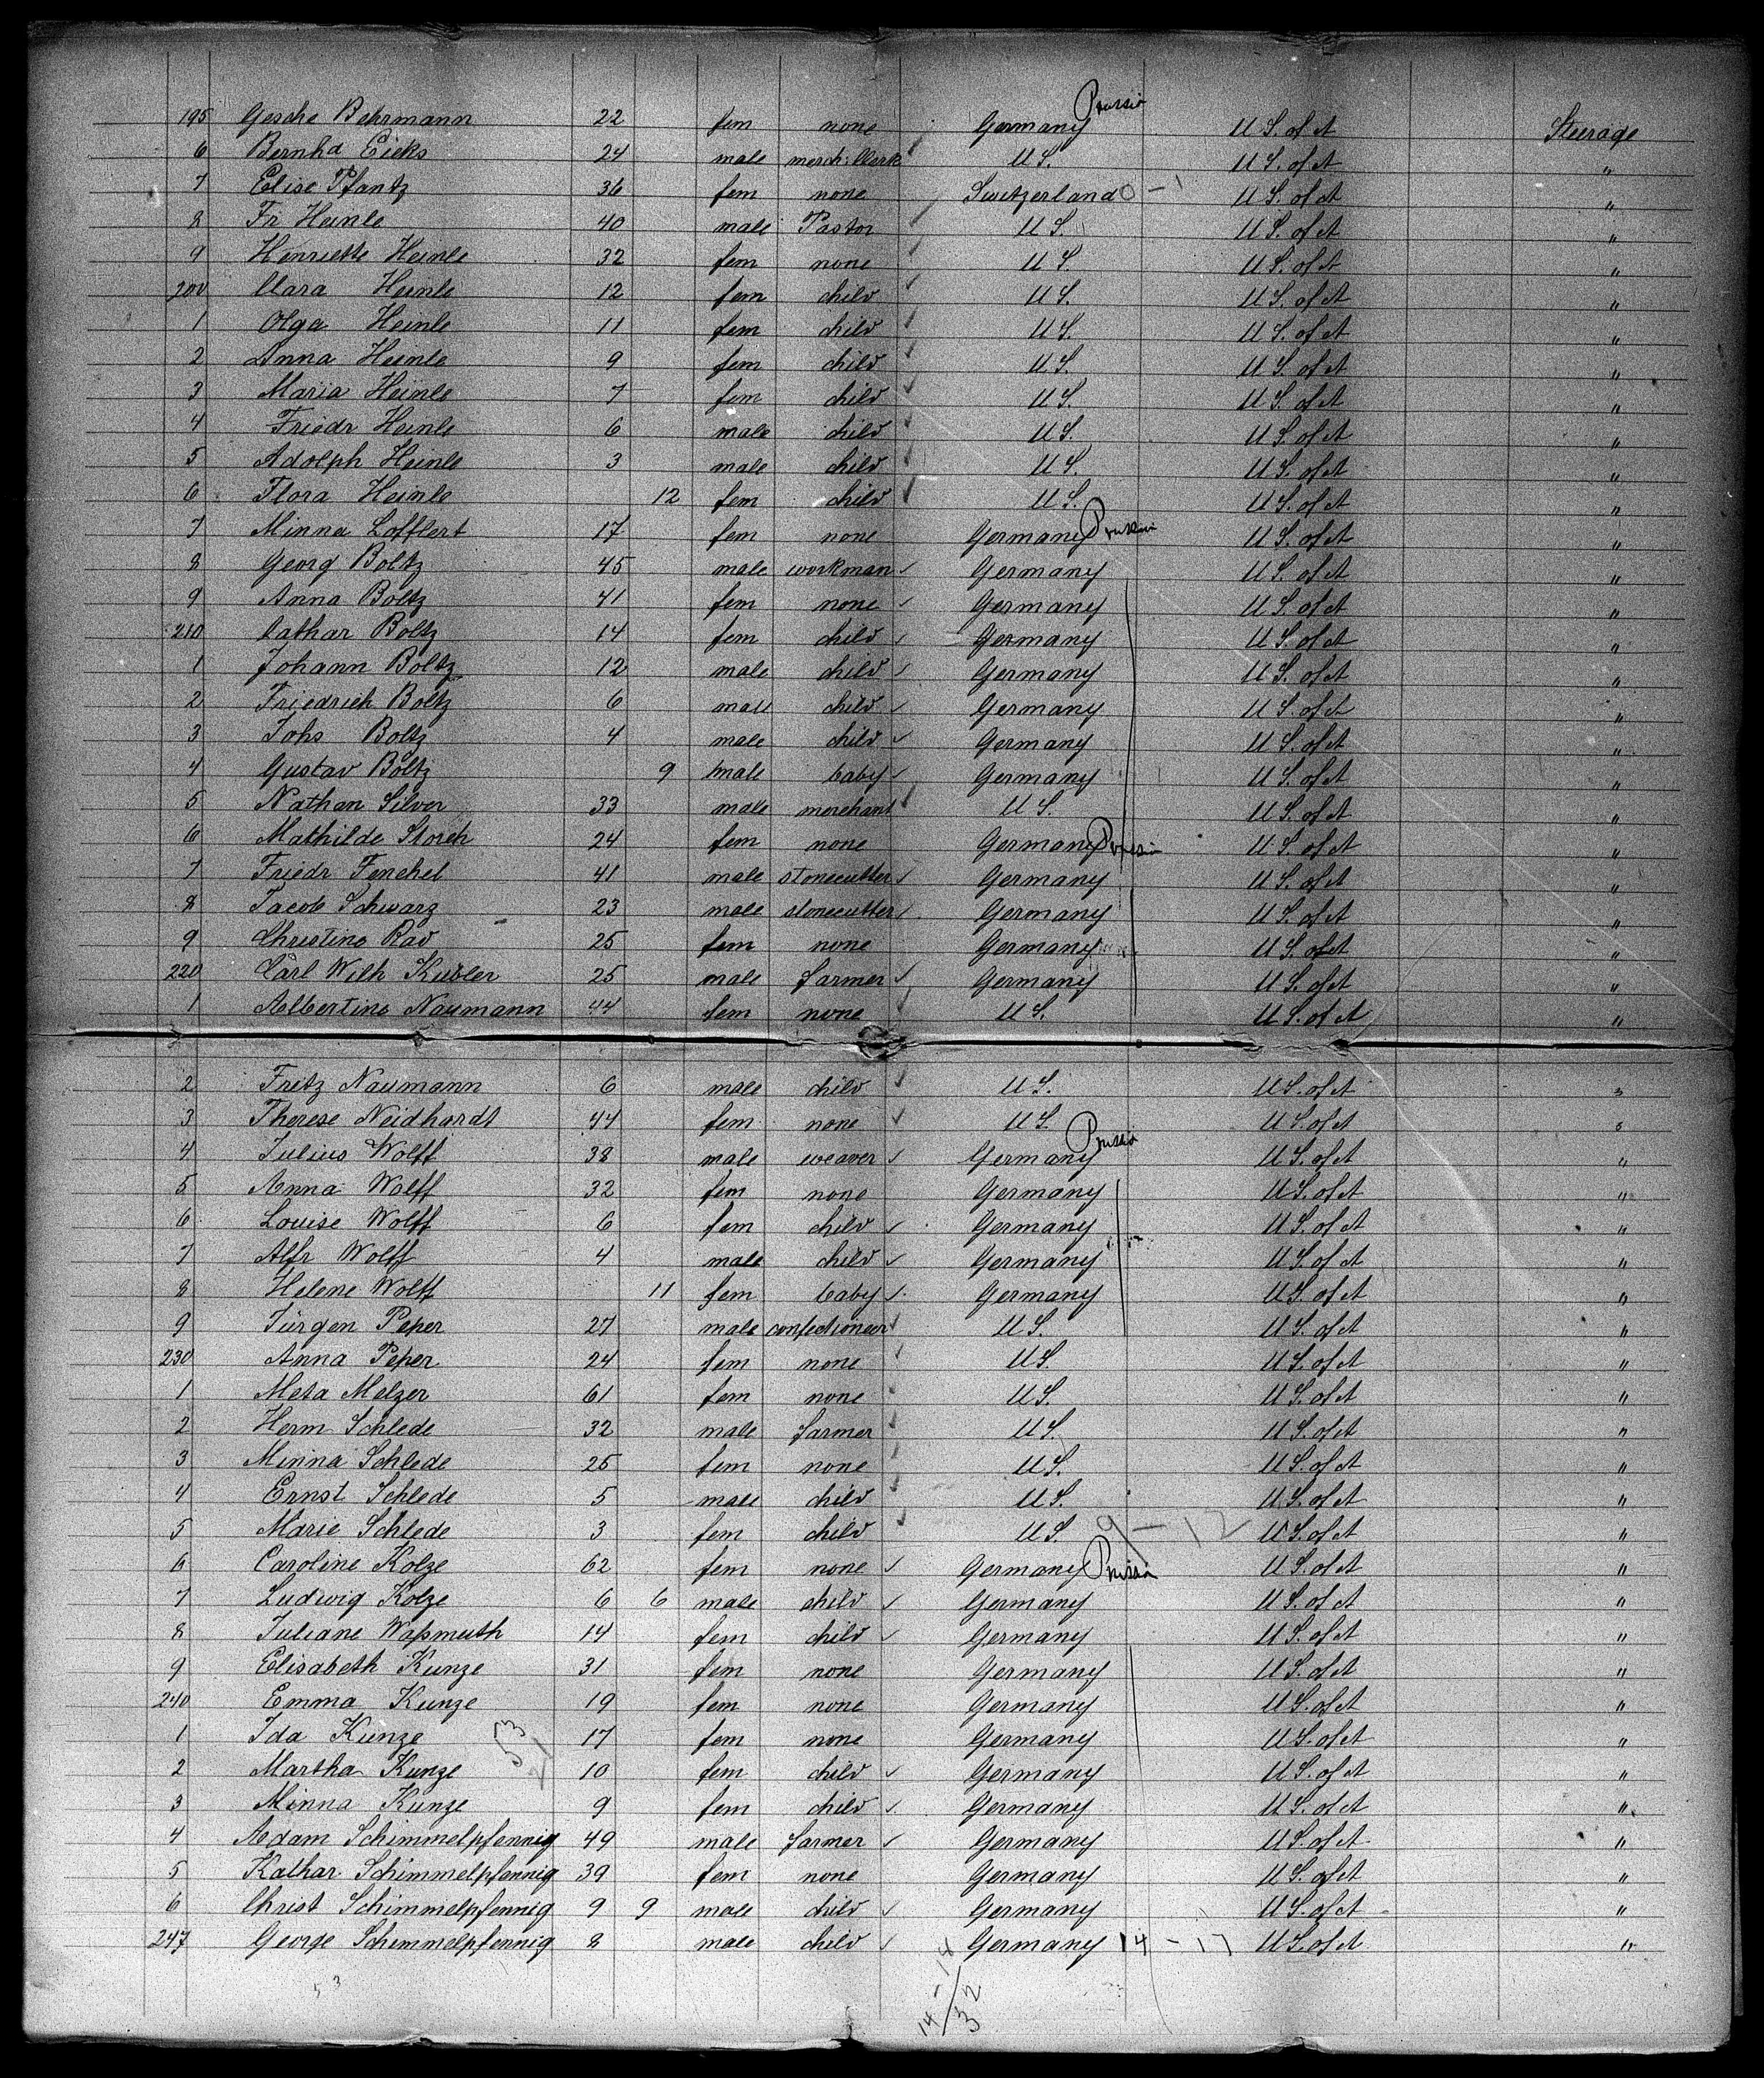 195 Gesche Behrmann 22 fem none Germany Prussia U S. of A Steerage
6 Bernhd Eicks 24 male merch: Clerk U S. U S. of A "
7 Elise Pfantz 36 fem none Switzerland 0 - 1 U S. of A "
8 Fr Heinle 40 male Pastor U S. U S. of A "
9 Henriette Heinle 32 fem none U S. U S. of A "
200 Clara Heinle 12 fem child U S. U S. of A "
1 Olga Heinle 11 fem child U S. U S. of A "
2 Anna Heinle 9 fem child U S. U S. of A "
3 Maria Heinle 7 fem child U S. U S. of A "
4 Friedr Heinle 6 male child U S. U S. of A "
5 Adolph Heinle 3 male child U S. U S. of A "
6 Flora Heinle 12 fem child U S. U S. of A "
7 Minna Lofflert 17 fem none Germany Prussia U S. of A "
8 Georg Boltz 45 male workman Germany U S. of A "
9 Anna Boltz 41 fem none Germany U S. of A "
210 Cathar Boltz 14 fem child Germany U S. of A "
1 Johann Boltz 12 male child Germany U S. of A "
2 Friedrich Boltz 6 male child Germany U S. of A "
3 Johs Boltz 4 male child Germany U S. of A "
4 Gustav Boltz 9 male baby Germany U S. of A "
5 Nathan Silver 33 male merchant U S. U S. of A "
6 Mathilde Storch 24 fem none Germany Prussia U S. of A "
7 Friedr Fenchel 41 male stonecutter Germany U S. of A "
8 Jacob Schwarz 23 male stonecutter Germany U S. of A "
9 Christine Rad 25 fem none Germany U S. of A "
220 Carl Wilh Kübler 25 male farmer Germany U S. of A "
1 Albertine Naumann 44 fem none U S. U S. of A "
2 Fritz Naumann 6 male child U S. U S. of A "
3 Therese Neidhardt 44 fem none U S. U S. of A "
4 Julius Wolff 38 male weaver Germany Prussia U S. of A "
5 Anna Wolff 32 fem none Germany U S. of A "
6 Louise Wolff 6 fem child Germany U S. of A "
7 Alfr Wolff 4 male child Germany U S. of A "
8 Helene Wolff 11 fem baby Germany U S. of A "
9 Jürgen Peper 27 male confectioneer U S. U S. of A "
230 Anna Peper 24 fem none U S. U S. of A "
1 Meta Melzer 61 fem none U S. U S. of A "
2 Herm Schlede 32 male farmer U S. U S. of A "
3 Minna Schlede 25 fem none U S. U S. of A "
4 Ernst Schlede 5 male child U S. U S. of A "
5 Marie Schlede 3 fem child U S. 9 - 12 U S. of A "
6 Caroline Kolze 62 fem none Germany Prussia U S. of A "
7 Ludwig Kolze 6 6 male child Germany U S. of A "
8 Juliane Waßmuth 14 fem child Germany U S. of A "
9 Elisabeth Kunze 31 fem none Germany U S. of A "
240 Emma Kunze 19 fem none Germany U S. of A "
1 Ida Kunze 53 17 fem none Germany U S. of A "
2 Martha Kunze 10 fem child Germany U S. of A "
3 Minna Kunze 9 fem child Germany U S. of A "
4 Adam Schimmelpfennig 49 male farmer Germany U S. of A "
5 Kathar Schimmelpfennig 39 fem none Germany U S. of A "
6 Christ Schimmelpfennig 9 9 male child Germany U S. of A "
247 George Schimmelpfennig 8 male child Germany 14 - 17 U S. of A "
53 14 - 14
32